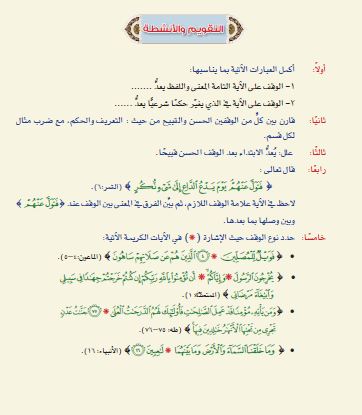 التقويم والأنشطة
أولاً: أكمل العبارات الآتية بما يناسبها:
١- الوقف على الآية التامة المعنى واللفظ يعدُّ .......
٢- الوقف على الآية في الذي يغيّر حكمًا شرعيًّا يعدُّ ......
ثانيًا: قارن بين كلٍّ من الوقفين الحسن والقبيح من حيث : التعريف والحكم، مع ضرب مثال
لكل قسم.
ثالثًا: علل: يُعدُّ الابتداء بعد الوقف الحسن قبيحًا.
رابعًا: قال تعالى :
﴿ فَتَوَلَّ عَنْهُمْ يَوْمَ يَدْعُ الدَّاعِ إِلَىٰ شَيْءٍ نُّكُرٍ ﴾ (القمر:٦).
لاحظ في الآية علامة الوقف اللازم، ثم بيِّن الفرق في المعنى بين الوقف عند ﴿ فَتَوَلَّ عَنْهُمْ ﴾
وبين وصلها بما بعدها.
خامسًا: حدد نوع الوقف حيث الإشارة ( * ) في الآيات الكريمة الآتية:
• ﴿ فَوَيْلٌ لِّلْمُصَلِّينَ * ﴿٤﴾ الَّذِينَ هُمْ عَن صَلَاتِهِمْ سَاهُونَ ﴾ (الماعون: ٤-٥).
• ﴿ يُخْرِجُونَ الرَّسُولَ * وَإِيَّاكُمْ * أَن تُؤْمِنُوا بِاللَّهِ رَبِّكُمْ إِن كُنتُمْ خَرَجْتُمْ جِهَادًا فِي سَبِيلِي
وَابْتِغَاءَ مَرْضَاتِي ﴾ (الممتحنة: ١).
• ﴿ وَمَن يَأْتِهِ مُؤْمِنًا قَدْ عَمِلَ الصَّالِحَاتِ فَأُولَٰئِكَ لَهُمُ الدَّرَجَاتُ الْعُلَىٰ * ﴿٧٥﴾ جَنَّاتُ عَدْنٍ
تَجْرِي مِن تَحْتِهَا الْأَنْهَارُ خَالِدِينَ فِيهَا ﴾ (طه: ٧٥-٧٦).
• ﴿ وَمَا خَلَقْنَا السَّمَاءَ وَالْأَرْضَ وَمَا بَيْنَهُمَا * لَاعِبِينَ ﴿١٦﴾ ﴾ (الأنبياء: ١٦).